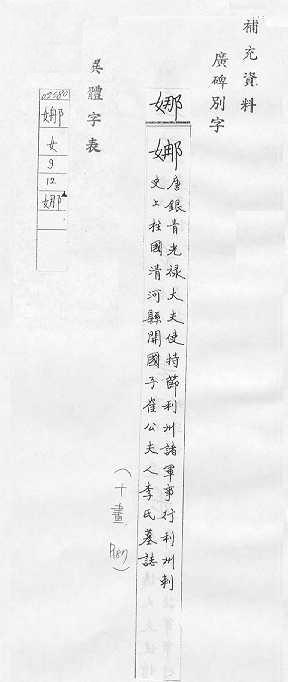 補充資料
廣碑別字
娜
娜 唐銀青光祿大夫使持節利州諸軍事行利州刺
史上柱國清河縣開國子崔公夫人李氏墓誌
(十畫 P87)
異體字表
02280
娜
女
9
12
娜